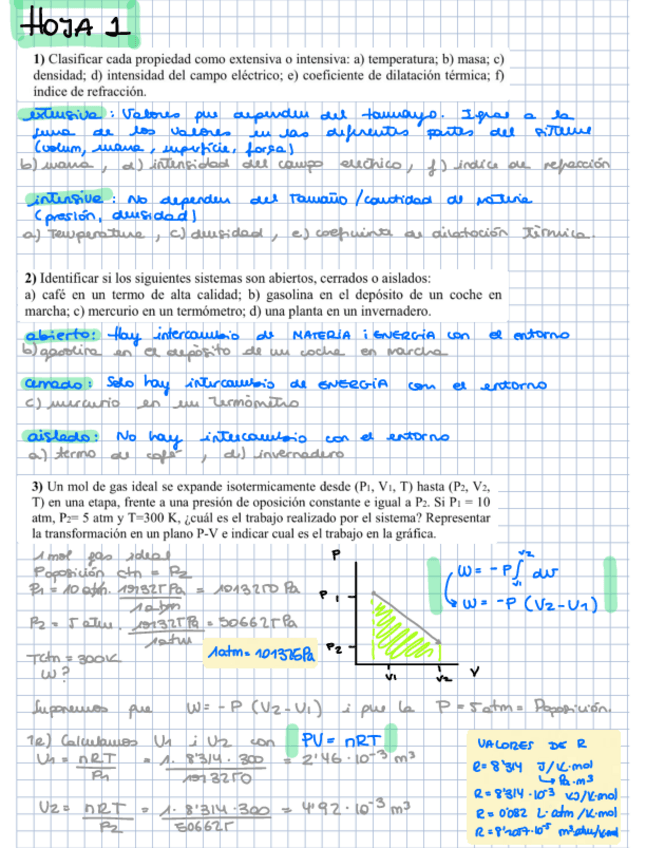 HOJA 1
1) Clasificar cada propiedad como extensiva o intensiva: a) temperatura; b) masa; c)
densidad; d) intensidad del campo eléctrico; e) coeficiente de dilatación térmica; f)
índice de refracción.
extensiva: Valores que dependen del tamayo. Igual a la
suma de los valores en las diferentes partes del sistema
(volum, massa, superficie, força)
b) massa, d) intensidad del campo electrico, f) indice de refracción
intensiva: No dependen del tamaño/cantidad de materia
(presión, densidad)
a) Temperatura, c) densidad, e) coeficiente de dilatación térmica.
2) Identificar si los siguientes sistemas son abiertos, cerrados o aislados:
a) café en un termo de alta calidad; b) gasolina en el depósito de un coche en
marcha; c) mercurio en un termómetro; d) una planta en un invernadero.
abierto: Hay intercambio de MATERIA i ENERGIA con el entorno
b) gasolina en el depósito de un coche en marcha
cerrado: Solo hay intercambio de ENERGIA con el entorno
c) mercurio en un termómetro
aislado: No hay intercambio con el entorno
a) termo de café, d) invernadero
3) Un mol de gas ideal se expande isotermicamente desde (P1, V1, T) hasta (P2, V2,
T) en una etapa, frente a una presión de oposición constante e igual a P2. Si P1 = 10
atm, P2= 5 atm y T=300 K, ¿cuál es el trabajo realizado por el sistema? Representar
la transformación en un plano P-V e indicar cual es el trabajo en la gráfica.
1 mol gas ideal
Poposición ctn = P2
P1 = 10 atm. 101325 Pa / 1 atm = 1013250 Pa
P2 = 5 atm. 101325 Pa / 1 atm = 506625 Pa
1 atm = 101325 Pa
T ctn = 300K
W?
P
P1
P2
V1
V2
V
W = -P ∫ v1 v2 dv
W = -P (V2-V1)
Suponemos que W = -P (V2-V1) i que la P = 5 atm = Poposición.
1º) Calculamos V1 i V2 con PV = nRT
V1 = nRT / P1 = 1. 8'314. 300 / 1013250 = 2'46 · 10⁻³ m³
V2 = nRT / P2 = 1. 8'314 · 300 / 506625 = 4'92 · 10⁻³ m³
VALORES DE R
R = 8'314 J/K·mol
↳ Pa·m³
R = 8'314 · 10⁻³ KJ/K·mol
R = 0'082 L·atm/K·mol